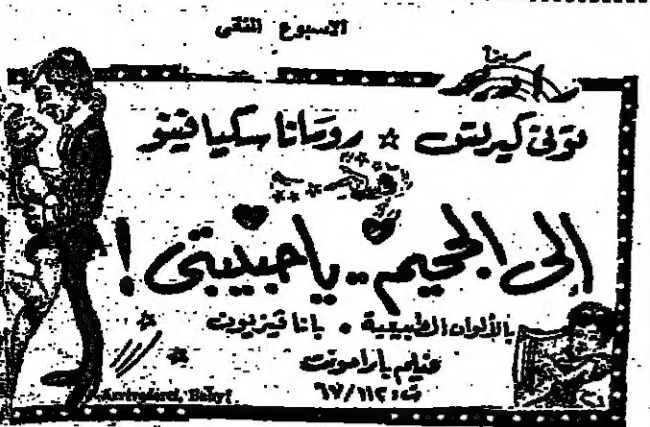 الاسبوع المقبل
سينا
تونى كيرتس ☆ روسانا سكيافينو
إلى الجحيم .. يا حبيبتى !
بالألوان الطبيعية • بانافيزيون
فيلم بارامونت
٦٧/١١٢
Arrivederci, Baby!